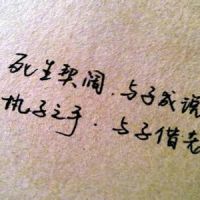 死生契阔．与子成说
执子之手．与子偕老